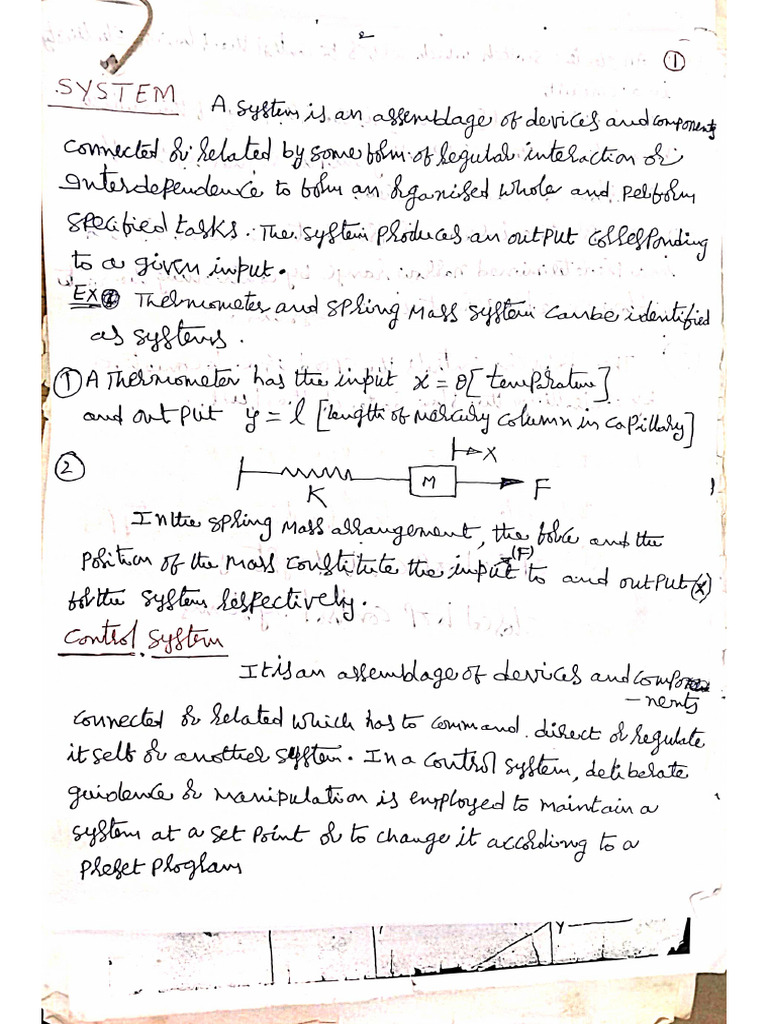 ①
SYSTEM A system is an assemblage of devices and components
connected or related by some form of regular interaction or
Interdependence to form an organised whole and perform
specified tasks. The system produces an output corresponding
to a given input.
EX Thermometer and spring Mass system can be identified
as systems.
① A Thermometer has the input x = θ [temperature]
and output y = l [length of mercury column in capillary]
②
X
K M F
In the spring mass arrangement, the force and the
position of the mass constitute the input (F) to and output (x)
for the system respectively.
Control System
It is an assemblage of devices and compo
-nents
connected or related which has to command. direct or regulate
itself or another system. In a control system, deliberate
guidence or manipulation is employed to maintain a
system at a set point or to change it according to a
preset program
Y